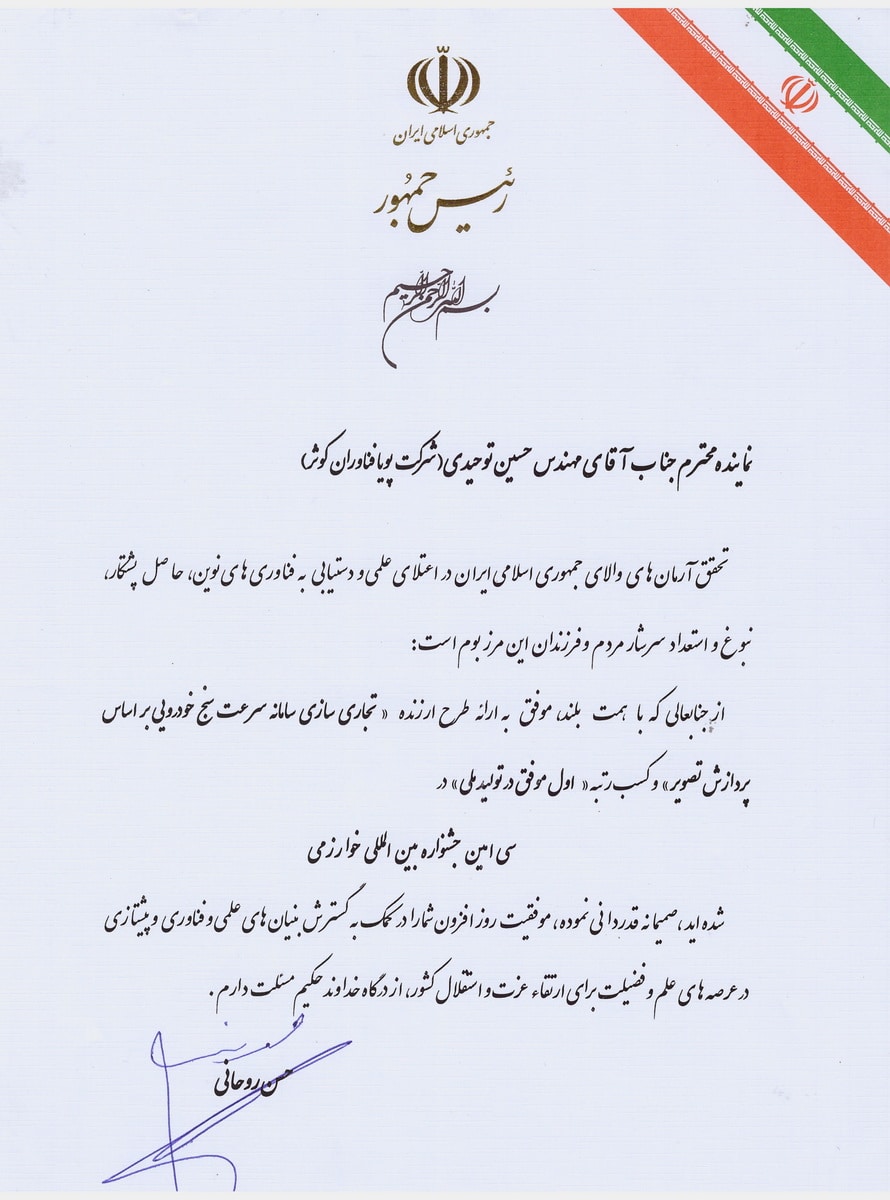 جمهوری اسلامی ایران
رئیس جمهور
بسم الله الرحمن الرحیم
نماینده محترم جناب آقای مهندس حسین توحیدی(شرکت پویا فناوران کوثر)
تحقق آرمان های والای جمهوری اسلامی ایران در اعتلای علمی و دستیابی به فناوری های نوین، حاصل پشتکار،
نبوغ و استعداد سرشار مردم و فرزندان این مرز بوم است:
از جنابعالی که با همت بلند، موفق به ارائه طرح ارزنده « تجاری سازی سامانه سرعت سنج خودرویی بر اساس
پردازش تصویر» و کسب رتبه « اول موفق در تولید ملی» در
سی امین جشنواره بین المللی خوارزمی
شده اید، صمیمانه قدردانی نموده، موفقیت روز افزون شما را در کمک به گسترش بنیان های علمی و فناوری و پیشتازی
در عرصه های علم و فضیلت برای ارتقاء عزت و استقلال کشور، از درگاه خداوند حکیم مسئلت دارم .
حسن روحانی